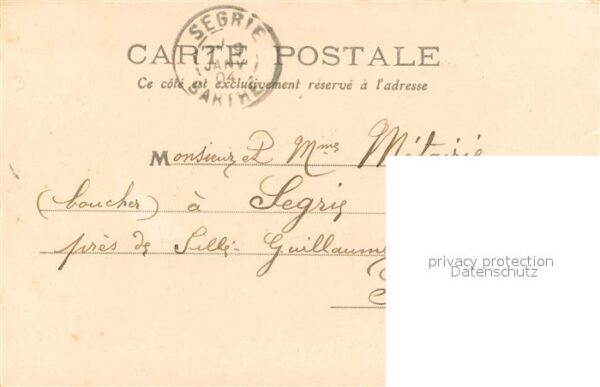 SEGRIE
JANV
04
SARTHE
CARTE POSTALE
Ce côté est exclusivement réservé à l'adresse
Monsieur et Mme Métairie
(boucher) à Segrie
près de Sillé-Guillaume
privacy protection
Datenschutz